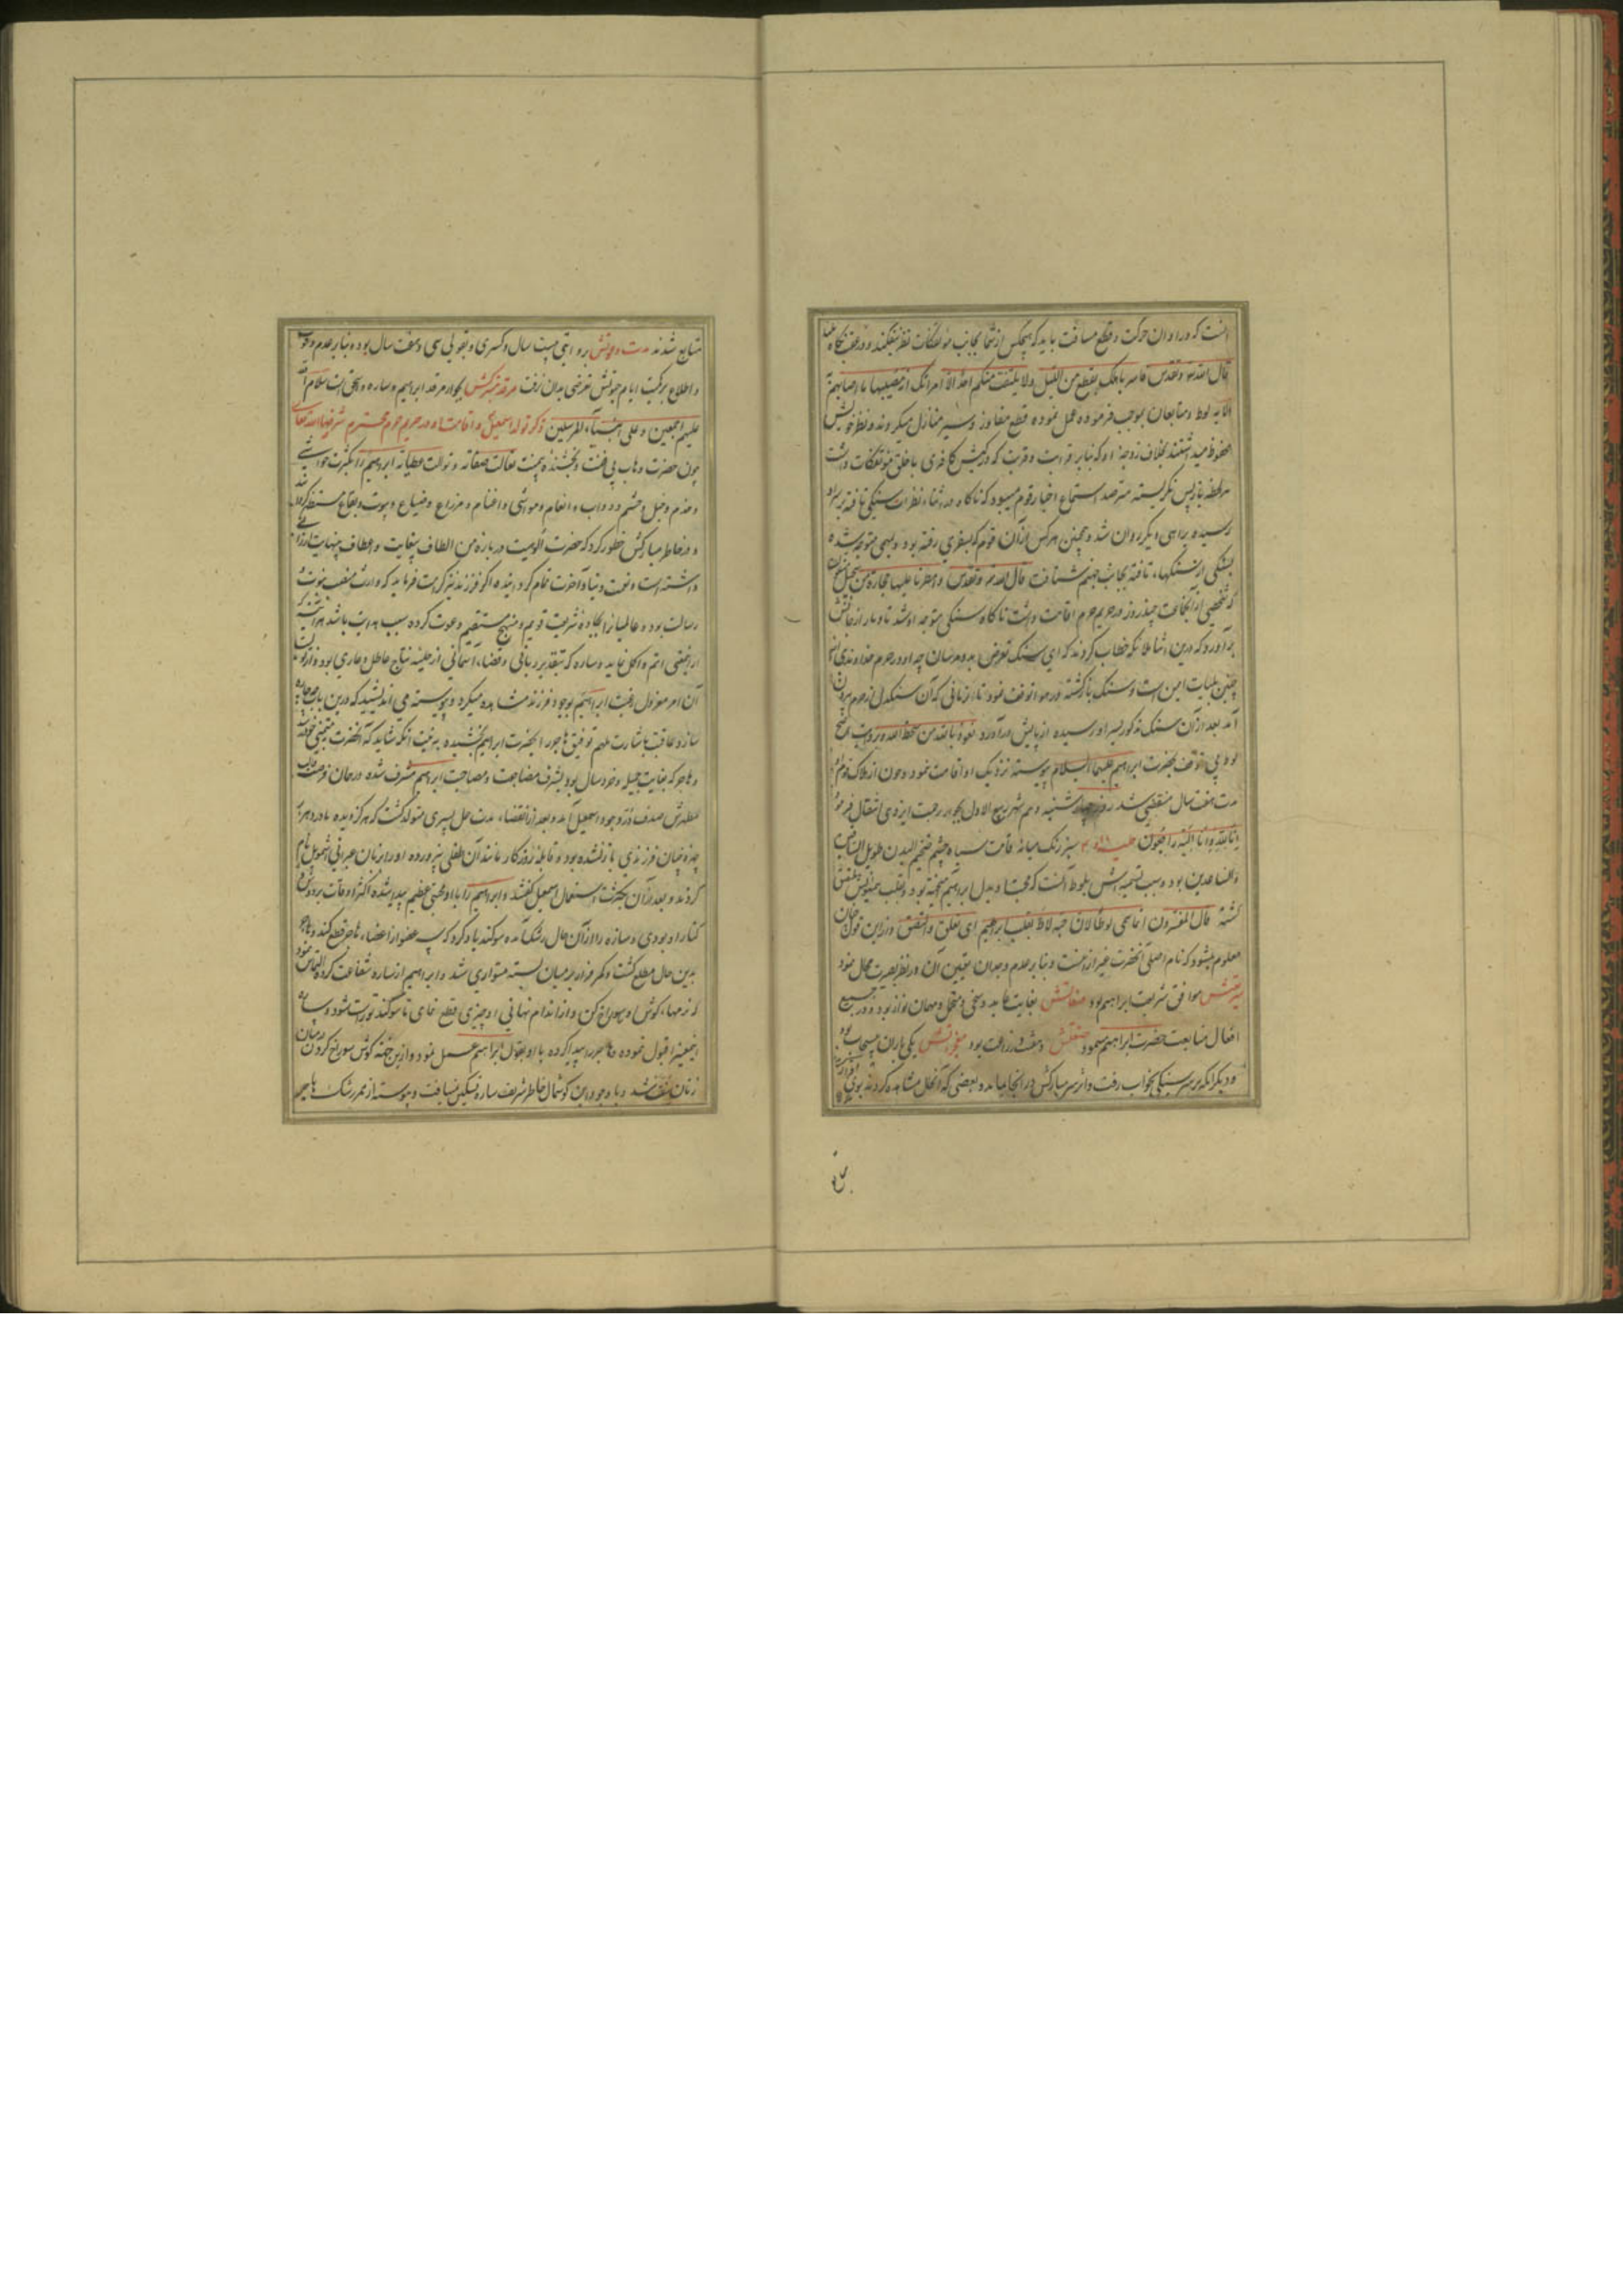 آنست که در اوان حرکت و قطع مسافت باید که هیچکس از شما بجانب مؤتفکات نظر نیفکند
قال الله تعالی وتقدس فاسر باهلک بقطع من اللیل ولا یلتفت منکم احد الا امراتک انه مصیبها ما اصابهم
الآیه لوط و متابعان بموجب فرموده عمل نموده قطع مفاوز و سیر منازل میکردند و نظر خویش
محفوظ میداشتند بخلاف زوجه او که بنابر قرابت و قربت که در کیش کافری با خلق مؤتفکات داشت
هر لحظه باز پس نگریسته مترصد استماع اخبار قوم میبود که ناگاه در اثناء نظرات سنگی تافته بر سر او
رسید و براهی دیگر روان شد و همچنین هر کس از آن قوم که بسفری رفته بود و بمهمی متوجه شده
بسنگی از سنگهاء تافته بجانب جهنم شتافت قال الله تعالی وتقدس وامطرنا علیها حجارة من سجیل منضود
که شخصی از آنجماعت چند روز در حریم حرم اقامت داشت ناگاه سنگی متوجه او شد تا دمار از جانش
برآورد که درین اثنا ملائکه خطاب کردند که ای سنگ تعرض بدو مرسان چه او در حرم خداوندی است
چنین بلیات امین است و سنگ بازگشته در هوا توقف نمود تا زمانی که آن سنگدل از حرم بیرون
آمد بعد از آن سنگ مذکور بسر او رسیده از پایش درآورد نعوذ بالله من سخط الله
لوط بی توقف بحضرت ابراهیم علیهما السلام پیوسته نزدیک او اقامت نمود و چون از هلاک قوم
مدت هفت سال منقضی شد روز چهارشنبه دهم شهر ربیع الاول بجوار رحمت ایزدی انتقال فرمود
انا لله وانا الیه راجعون حلیه او سبز رنگ میانه قامت سیاه چشم ضخیم الیدین طویل الساقین
والساعدین بود و سبب تسمیه اش بلوط آنست که محبت او بدل ابراهیم آمیخته بود و بقلب میمونش ملتصق
گشته قال المفسرون انما سمی لوطا لان حبه لاط بقلب ابراهیم ای تعلق والتصق و از این قول چنان
معلوم میشود که نام اصلی آنحضرت غیر از اینست و بنابر عدم وجدان تعیین آن در نظر بصیرت محال نمود
سیرتش موافق شریعت ابراهیم بود صفاتش بغایت عابد و سخی و متحمل و مهمان نواز بود و در جمیع
افعال متابعت حضرت ابراهیم مینمود صنعتش دهقنت و زراعت بود معجزاتش یکی باران بی سحاب بود
و دیگر آنکه بر سر سنگی بخواب رفت و اثر سر مبارکش در آنجا بماند و بعضی که آنحال مشاهده کردند
متابع شدند مدت دعوتش بروایتی بیست سال و کسری و بقولی سی و هفت سال بوده بنابر عدم وقوف
و اطلاع بر کمیت ایام حیوتش تعرضی بدان نرفت مرقد متبرکش بجوار مرقد ابراهیم و ساره و اسحق است سلام الله
علیهم اجمعین و علی انبیآء المرسلین ذکر تولد اسمعیل و اقامت او در حریم حرم محترم شرفها الله تعالی
چون حضرت وهاب بی منت و بخشنده بی ضنت تعالت صفاته و توالت عطیاته ابراهیم را بکثرت مواشی
و خدم و خیل و حشم و دواب و انعام و مواشی و اغنام و مزارع و ضیاع و بیوت و بقاع مستظهر گردانید
و در خاطر مبارکش خطور کرد که حضرت الوهیت درباره من الطاف بیغایت و اعطاف بینهایت ارزانی
داشته است و نعمت دنیا و آخرت تمام گردانیده اگر فرزند نیز کرامت فرماید که وارث منصب نبوت و
رسالت بود و عالمیانرا بجاده شریعت قویم و منهج مستقیم دعوت کرده سبب هدایت باشد هر آینه
از نعمتی اتم و اکمل نماید و ساره که بتقدیر ربانی و قضاء آسمانی از حلیه نتاج عاطل و عاری بود
آن امر معزول رغبت ابراهیم بوجود فرزند مشاهده میکرد و پیوسته می اندیشید که درین باب چه چاره
سازد عاقبت باشارت ملهم توفیق هاجر را بحضرت ابراهیم بخشیده بنیت آنکه شاید که آنحضرت
و هاجر که بغایت جمیله و خردسال بود بشرف مضاجعت و مصاحبت ابراهیم مشرف شده در همان فرصت
مطهرش صدف در وجود اسمعیل آمد و بعد از انقضاء مدت حمل پسری متولد گشت که هرگز دیده مادر دهر
بر چنان فرزندی باز نشده بود و قابله روزگار مانند آن طفلی نپرورده او را بزبان عبرانی اشمویل نام
کردند و بعد از آن بکثرت استعمال اسمعیل گفتند و ابراهیم را با او محبتی عظیم پیدا شده اکثر اوقات بر دوش و
کنار او بودی و ساره را از آن حال رشک آمده سوگند یاد کرد که سه عضو از اعضاء هاجر قطع کند و هاجر
بدین حال مطلع گشت و کمر فرار بر میان بسته متواری شد و ابراهیم از ساره شفاعت کرده التماس نمود
که نرمهاء گوش او سوراخ کن و از اندام نهانی او چیزی قطع نمای تا سوگند تو راست شود و ساره
اینمعنیرا قبول نموده هاجر را پیدا کرده با او بقول ابراهیم عمل نمود و از این ختنه گوش سوراخ کردن در میان
زنان سنت شد و با وجود این گوشمال خاطر شریف ساره تسکین نیافت و پیوسته از ممر رشک هاجر